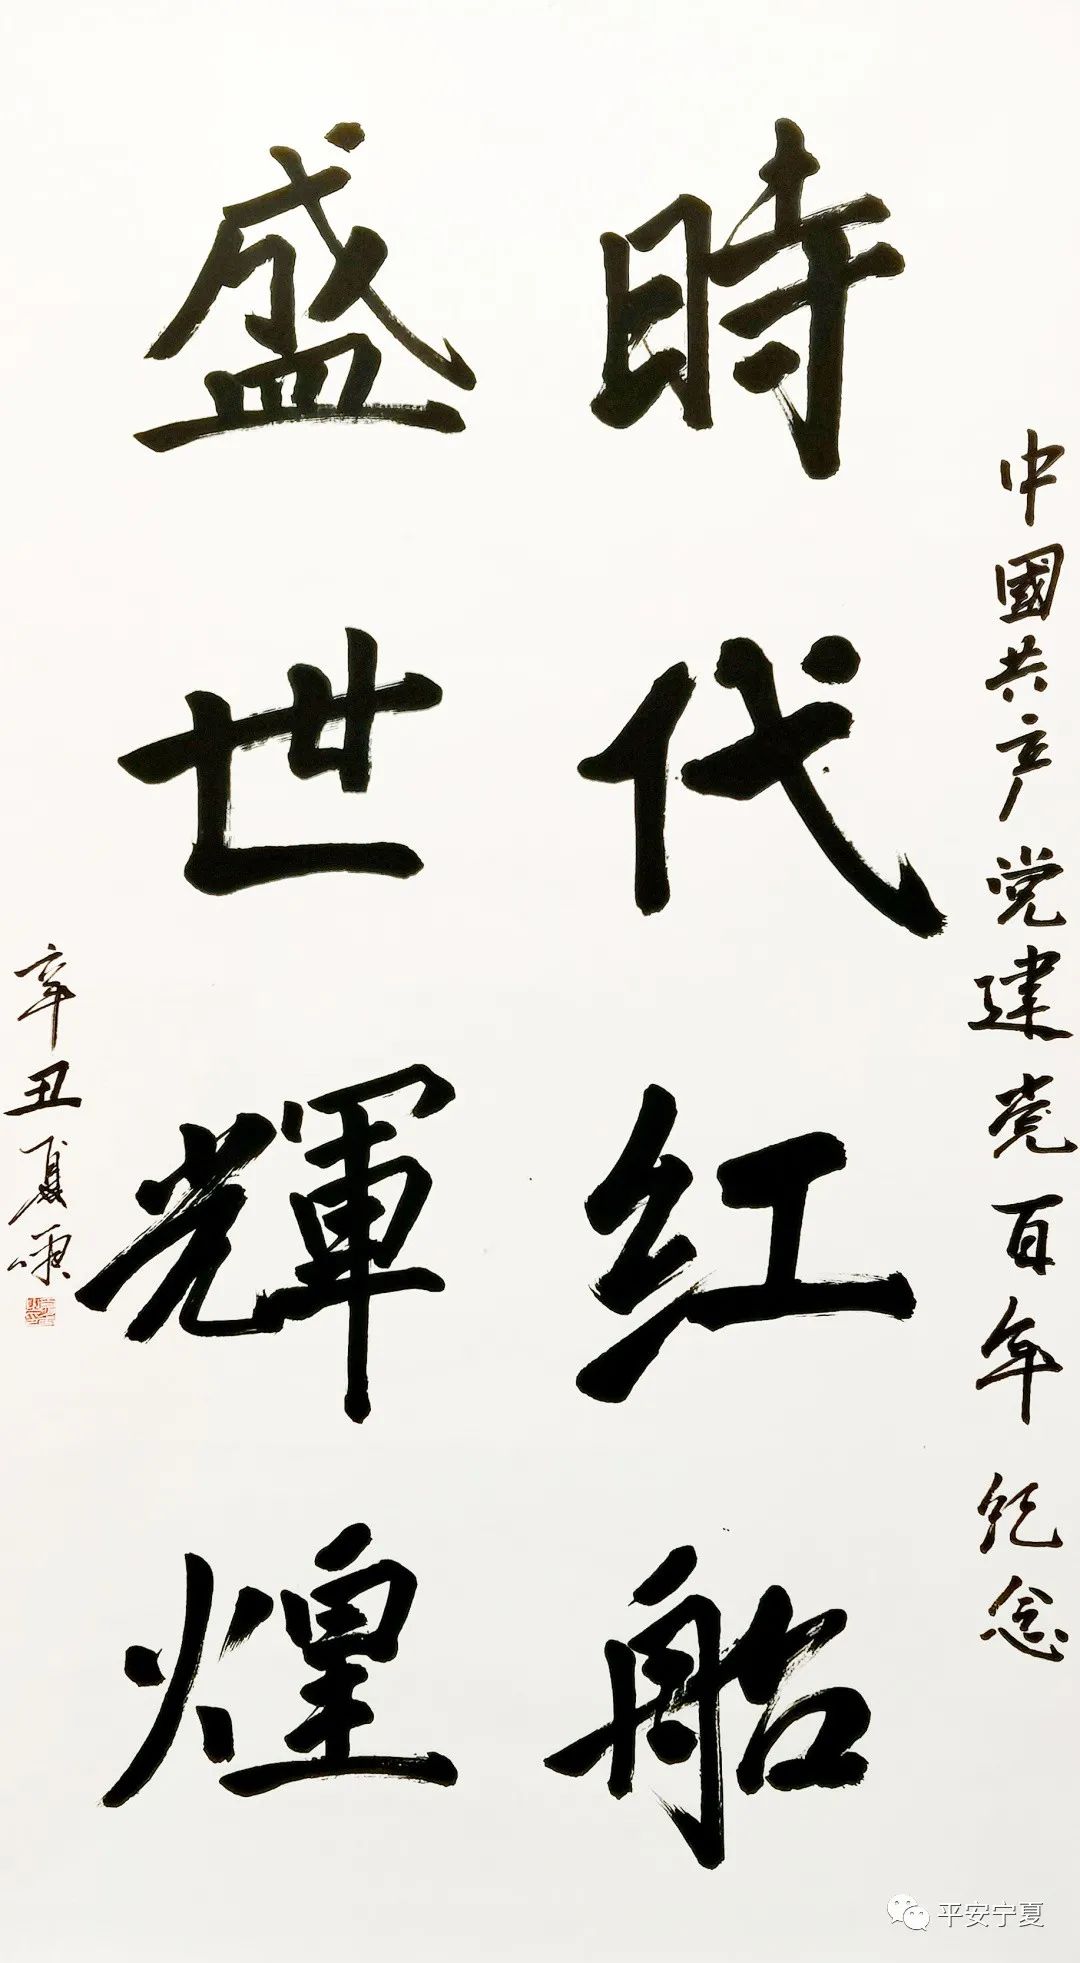 中國共产党建党百年纪念
時代红船
盛世輝煌
辛丑夏
平安宁夏